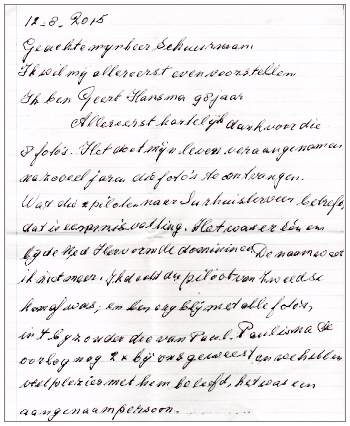 12-8-2015
Geachte mijnheer Schuurman
Ik wil mij allereerst even voorstellen
Ik ben Geert Hansma 98 jaar
Allereerst hartelijk dank voor die
8 foto's. Het doet mijn leven veraangenamen
na zoveel jaren die foto's te ontvangen.
Wat die 2 piloten naar Surhuisterveen betreft,
dat is een misvatting. Het was er één en
bij de Ned Hervormde dominee De naam weet
ik niet meer. Ik dacht die piloot van Zweedse
komaf was; en ben erg blij met alle foto's,
in 't bijzonder die van Paul. Paul is na de
oorlog nog 2x bij ons geweest en we hebben
veel plezier met hem beleefd, het was een
aangenaam persoon.